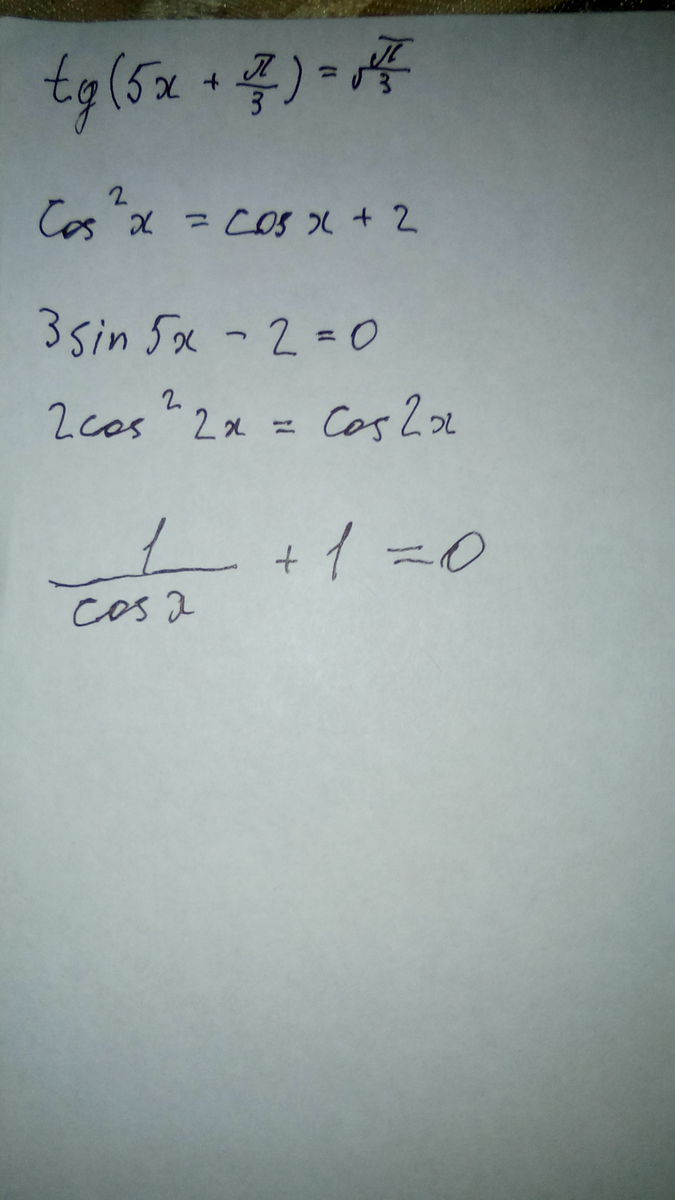 tg(5x + π/3) = √π/3
cos²x = cos x + 2
3sin 5x - 2 = 0
2cos²2x = cos2x
1/cosx + 1 = 0